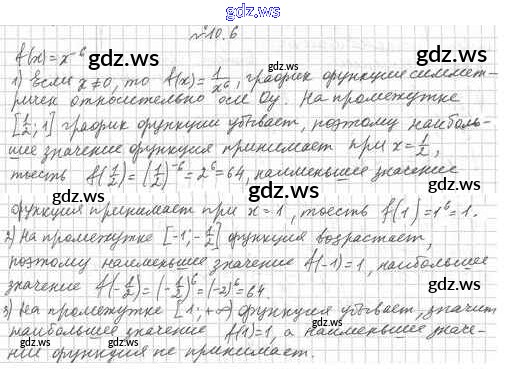 gdz.ws
№10.6
f(x)=x⁻⁶ gdz.ws gdz.ws
1) Если x≠0, то f(x)=1/x⁶, график функции симмет-
ричен относительно оси Oy. На промежутке
[1/2; 1] график функции убывает, поэтому наиболь-
шее значение функция принимает при x=1/2,
тоесть f(1/2)=(1/2)⁻⁶=2⁶=64, наименьшее значение
gdz.ws gdz.ws
функция принимает при x=1, тоесть f(1)=1⁶=1.
2) На промежутке [-1;-1/2] функция возрастает,
поэтому наименьшее значение f(-1)=1, наибольшее
значение f(-1/2)=(-1/2)⁶=(-2)⁶=64.
gdz.ws gdz.ws
3) На промежутке [1;+∞) функция убывает, значит
наибольшее значение f(1)=1, а наименьшее значе-
ние функция не принимает.
gdz.ws gdz.ws